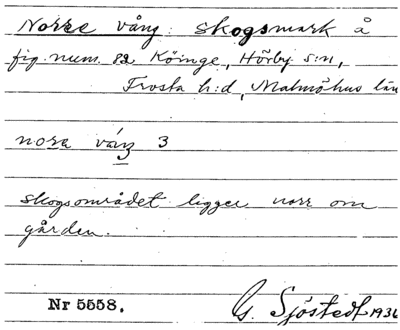 Norre vång: skogsmark å
fig. num. 82 Köinge, Hörby s:n,
Frosta h:d, Malmöhus län
nora váng 3
skogsområdet ligger norr om
gården.
Nr 5558. G. Sjöstedt 1936